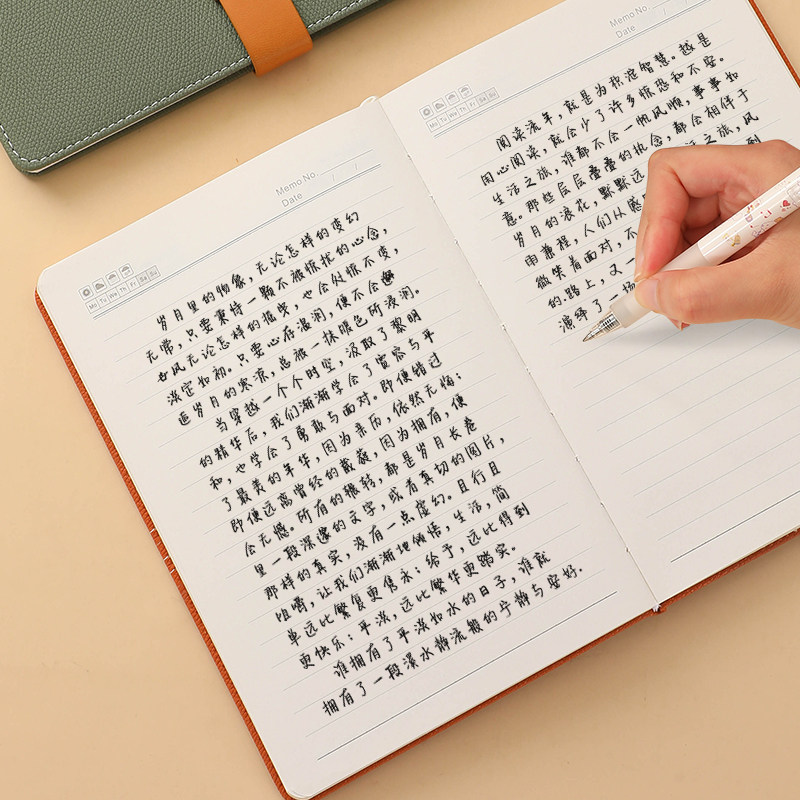 Memo No.
Date / /
Mo Tu We Th Fr Sa Su
岁月里的物象,无论怎样的变幻
无常,只要秉持一颗不被惊扰的心念,
世风无论怎样的摇曳,也会处惊不变,
淡定如初。只要心存温润,便不会
追岁月的寒凉,总被一抹暖色所浸润。
当穿越一个个时空,汲取了黎明
的精华后,我们渐渐学会了宽容与平
和,也学会了勇敢与面对。即便错过
了最美的年华,因为亲历,依然无悔;
即便远离曾经的戴薇,因为拥有,便
会无憾。所有的辗转,都是岁月长卷
里一段深邃的文字,或者真切的图片,
那样的真实,没有一点虚幻。且行且
咀嚼,让我们渐渐地领悟,生活,简
单远比繁复更隽永;给予,远比得到
更快乐;平淡,远比繁华更踏实。
谁拥有了平淡如水的日子,谁就
拥有了一段深水静流般的宁静与安好.
Memo No.
Date / /
Mo Tu We Th Fr Sa Su
阅读流年,就是为积淀智慧。越是
用心阅读,就会少了许多惊恐和不安。
生活之旅,谁都不会一帆风顺,事事如
意。那些层层叠叠的执念,都会相伴于
岁月的浪花,默默远 活之旅,风
雨兼程,人们从感 到
微笑着面对,不
的路上,又一
演绎了一场